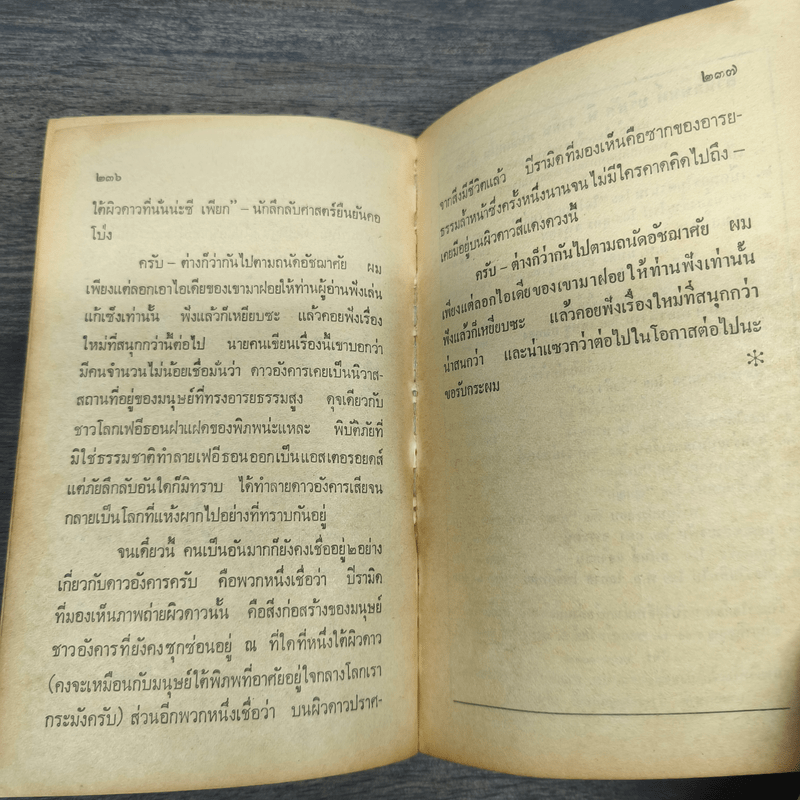 ๒๓๖
ใต้ผิวดาวที่นั่นน่ะซี เพียก” – นักลึกลับศาสตร์ยืนยันคอ
โป่ง
ครับ – ต่างก็ว่ากันไปตามถนัดอัชฌาศัย ผม
เพียงแต่ลอกเอาไอเดียของเขามาฝอยให้ท่านผู้อ่านฟังเล่น
แก้เซ็งเท่านั้น ฟังแล้วก็เหยียบซะ แล้วคอยฟังเรื่อง
ใหม่ที่สนุกกว่านี้ต่อไป นายคนเขียนเรื่องนี้เขาบอกว่า
มีคนจำนวนไม่น้อยเชื่อมั่นว่า ดาวอังคารเคยเป็นนิวาส-
สถานที่อยู่ของมนุษย์ที่ทรงอารยธรรมสูง ดุจเดียวกับ
ชาวโลกเฟอีธอนฝาแฝดของพิภพน่ะแหละ พิบัติภัยที่
มิใช่ธรรมชาติทำลายเฟอีธอนออกเป็นแอสเตอรอยดส์
แต่ภัยลึกลับอันใดก็มิทราบ ได้ทำลายดาวอังคารเสียจน
กลายเป็นโลกที่แห้งผากไปอย่างที่ทราบกันอยู่
จนเดี๋ยวนี้ คนเป็นอันมากก็ยังคงเชื่ออยู่๒อย่าง
เกี่ยวกับดาวอังคารครับ คือพวกหนึ่งเชื่อว่า ปิรามิด
ที่มองเห็นภาพถ่ายผิวดาวนั้น คือสิ่งก่อสร้างของมนุษย์
ชาวอังคารที่ยังคงซุกซ่อนอยู่ ณ ที่ใดที่หนึ่งใต้ผิวดาว
(คงจะเหมือนกับมนุษย์ใต้พิภพที่อาศัยอยู่ใจกลางโลกเรา
กระมังครับ) ส่วนอีกพวกหนึ่งเชื่อว่า บนผิวดาวปราศ-
๒๓๗
จากสิ่งมีชีวิตแล้ว ปิรามิดที่มองเห็นคือซากของอารย-
ธรรมล้ำหน้าซึ่งครั้งหนึ่งนานจน ไม่มีใครคาดคิดไปถึง –
เคยมีอยู่บนผิวดาวสีแดงดวงนี้
ครับ – ต่างก็ว่ากันไปตามถนัดอัชฌาศัย ผม
เพียงแต่ลอกไอเดียของเขามาฝอยให้ท่านฟังเท่านั้น
ฟังแล้วก็เหยียบซะ แล้วคอยฟังเรื่องใหม่ที่สนุกกว่า
น่าสนกว่า และน่าแซวกว่าต่อไปในโอกาสต่อไปนะ
ขอรับกระผม *